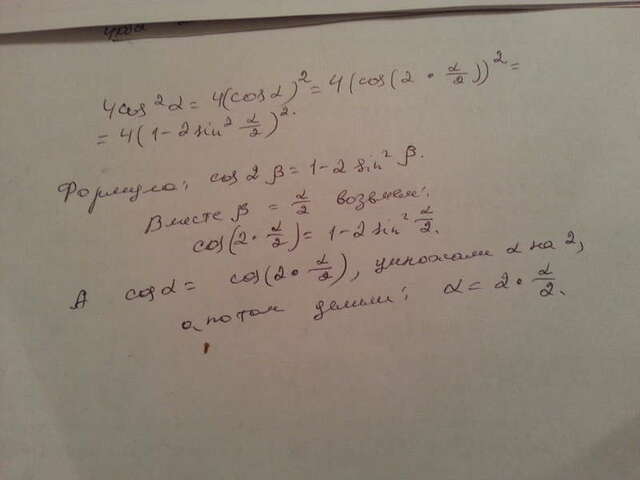 4cos²α = 4(cosα)² = 4(cos(2·α/2))² =
= 4(1-2sin² α/2)².
Формула: cos2β = 1-2sin²β.
Вместе β = α/2 возьмем:
cos(2·α/2) = 1-2sin² α/2.
А cosα = cos(2·α/2), умножали α на 2,
а потом делили: α = 2·α/2.